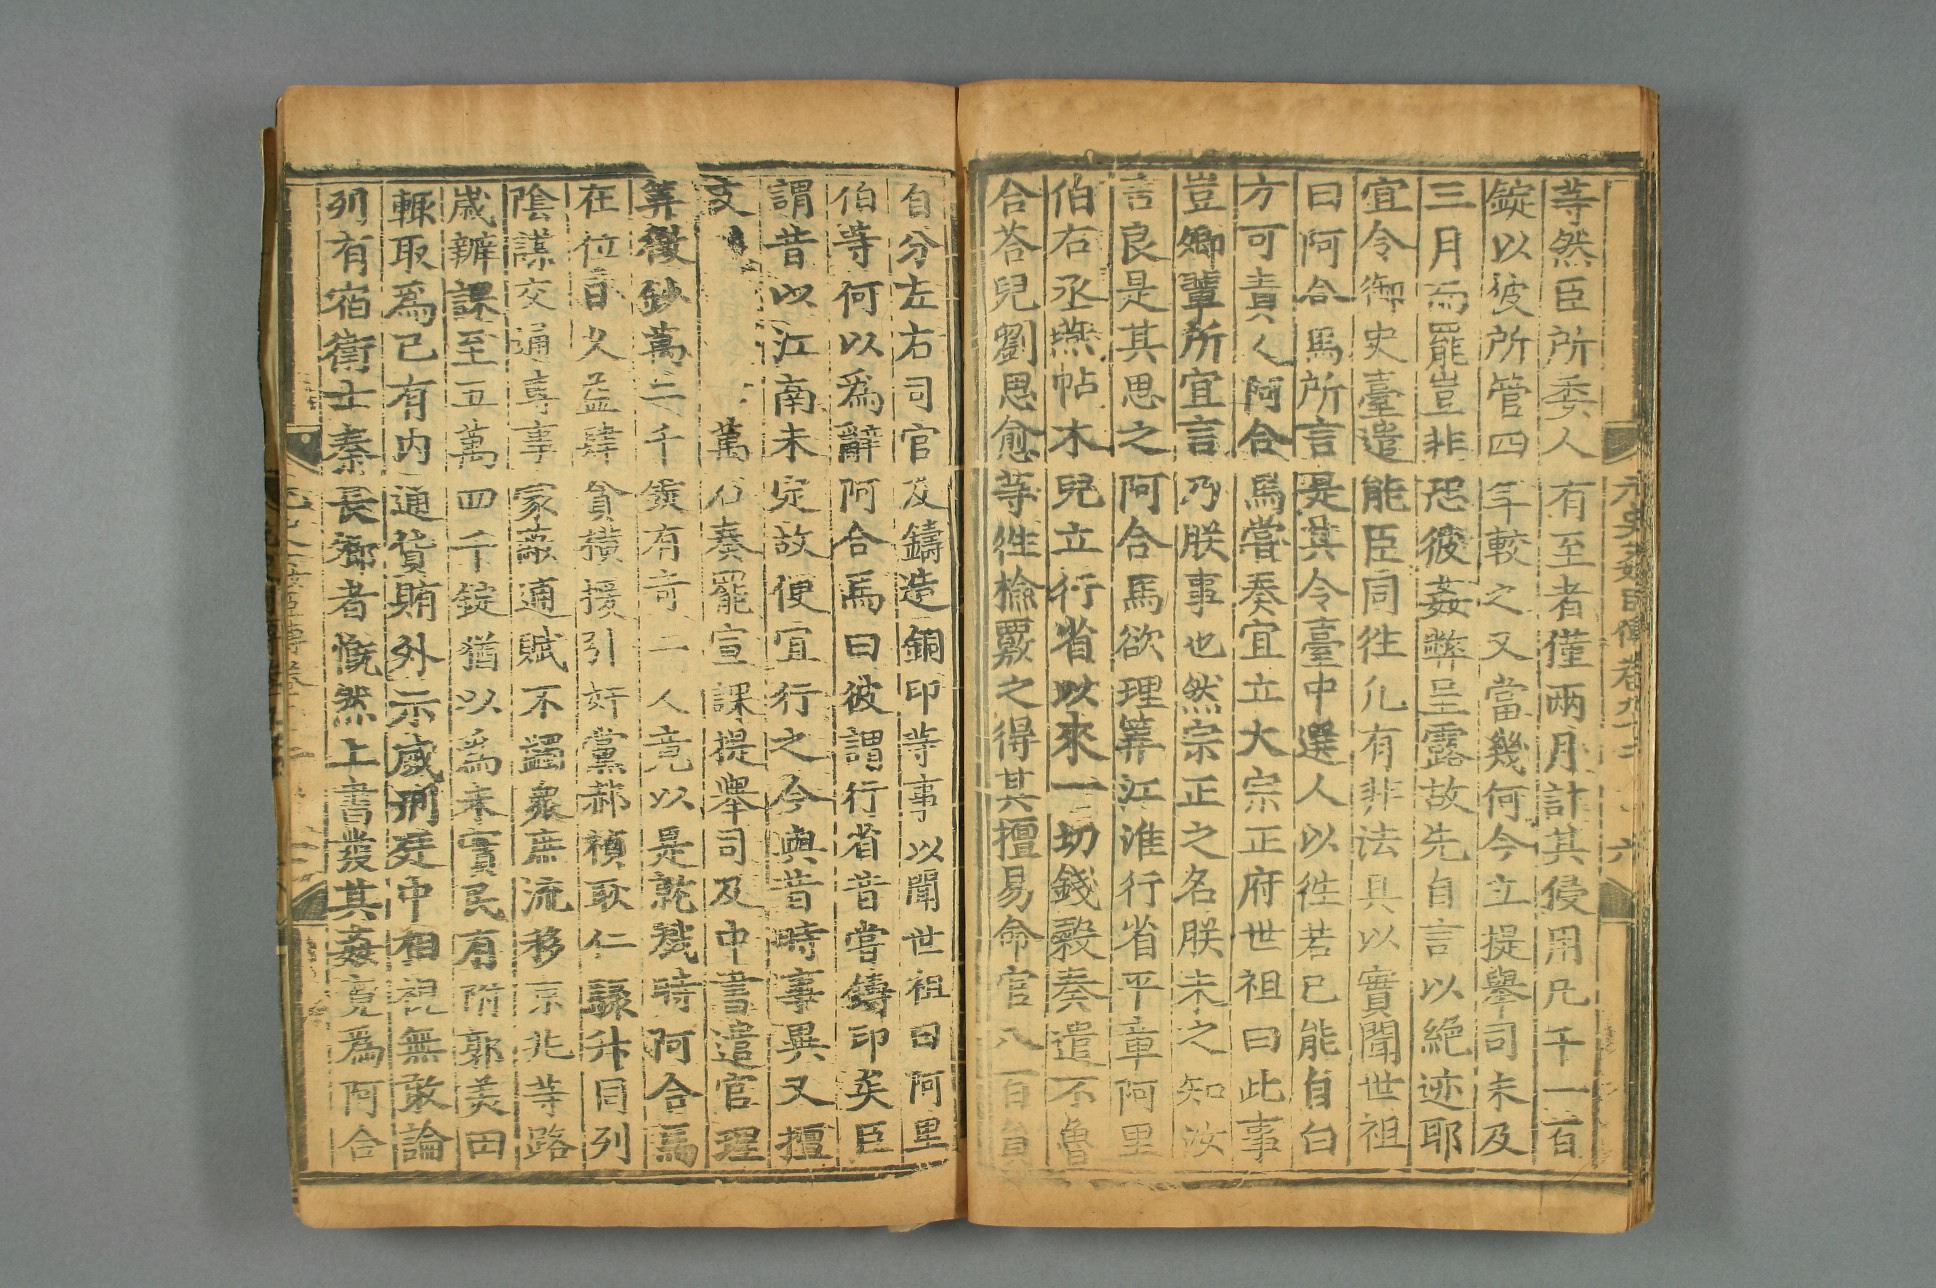 等然臣所委人有至者僅兩月計其侵用凡千一百
錠以彼所管四年較之又當幾何今立提舉司未及
三月而罷豈非恐彼姦弊呈露故先自言以絕迹耶
宜令御史臺遣能臣同徃凡有非法具以實聞世祖
曰阿合馬所言是其令臺中選人以徃若已能自白
方可責人阿合馬嘗奏宜立大宗正府世祖曰此事
豈卿輩所宜言乃朕事也然宗正之名朕未之知汝
言良是其思之阿合馬欲理筭江淮行省平章阿里
伯右丞燕帖木兒立行省以來一切錢穀奏遣不魯
合荅兒劉思愈等徃檢覈之得其擅易命官八百員
自分左右司官及鑄造銅印等事以聞世祖曰阿里
伯等何以爲辭阿合馬曰彼謂行省昔嘗鑄印矣臣
謂昔以江南未定故便宜行之今與昔時事異又擅
支 萬石奏罷宣課提舉司及中書遣官理
筭徵鈔萬二千錠有奇二人竟以是就戮時阿合馬
在位日久益肆貪橫援引奸黨郝禎耿仁驟升同列
陰謀交通專事蒙蔽逋賦不蠲衆庶流移京兆等路
歲辦課至五萬四千錠猶以爲未實民有附郭美田
輒取爲己有内通貨賄外示威刑廷中相視無敢論
列有宿衛士秦長卿者慨然上書發其姦竟爲阿合
元史姦臣傳卷九十二 六